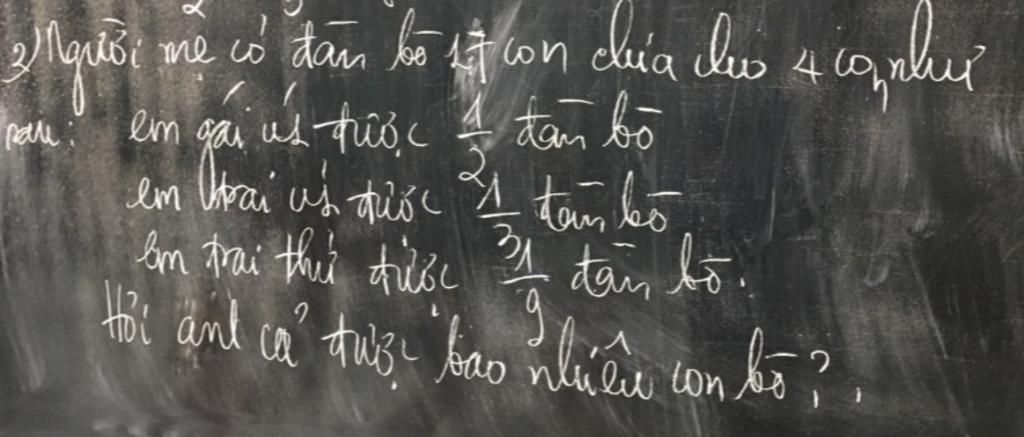 3) Người mẹ có đàn bò 17 con chia cho 4 con như
sau: em gái út được 1/2 đàn bò
em trai út được 1/3 đàn bò
em trai thứ được 1/9 đàn bò.
Hỏi anh cả được bao nhiêu con bò?